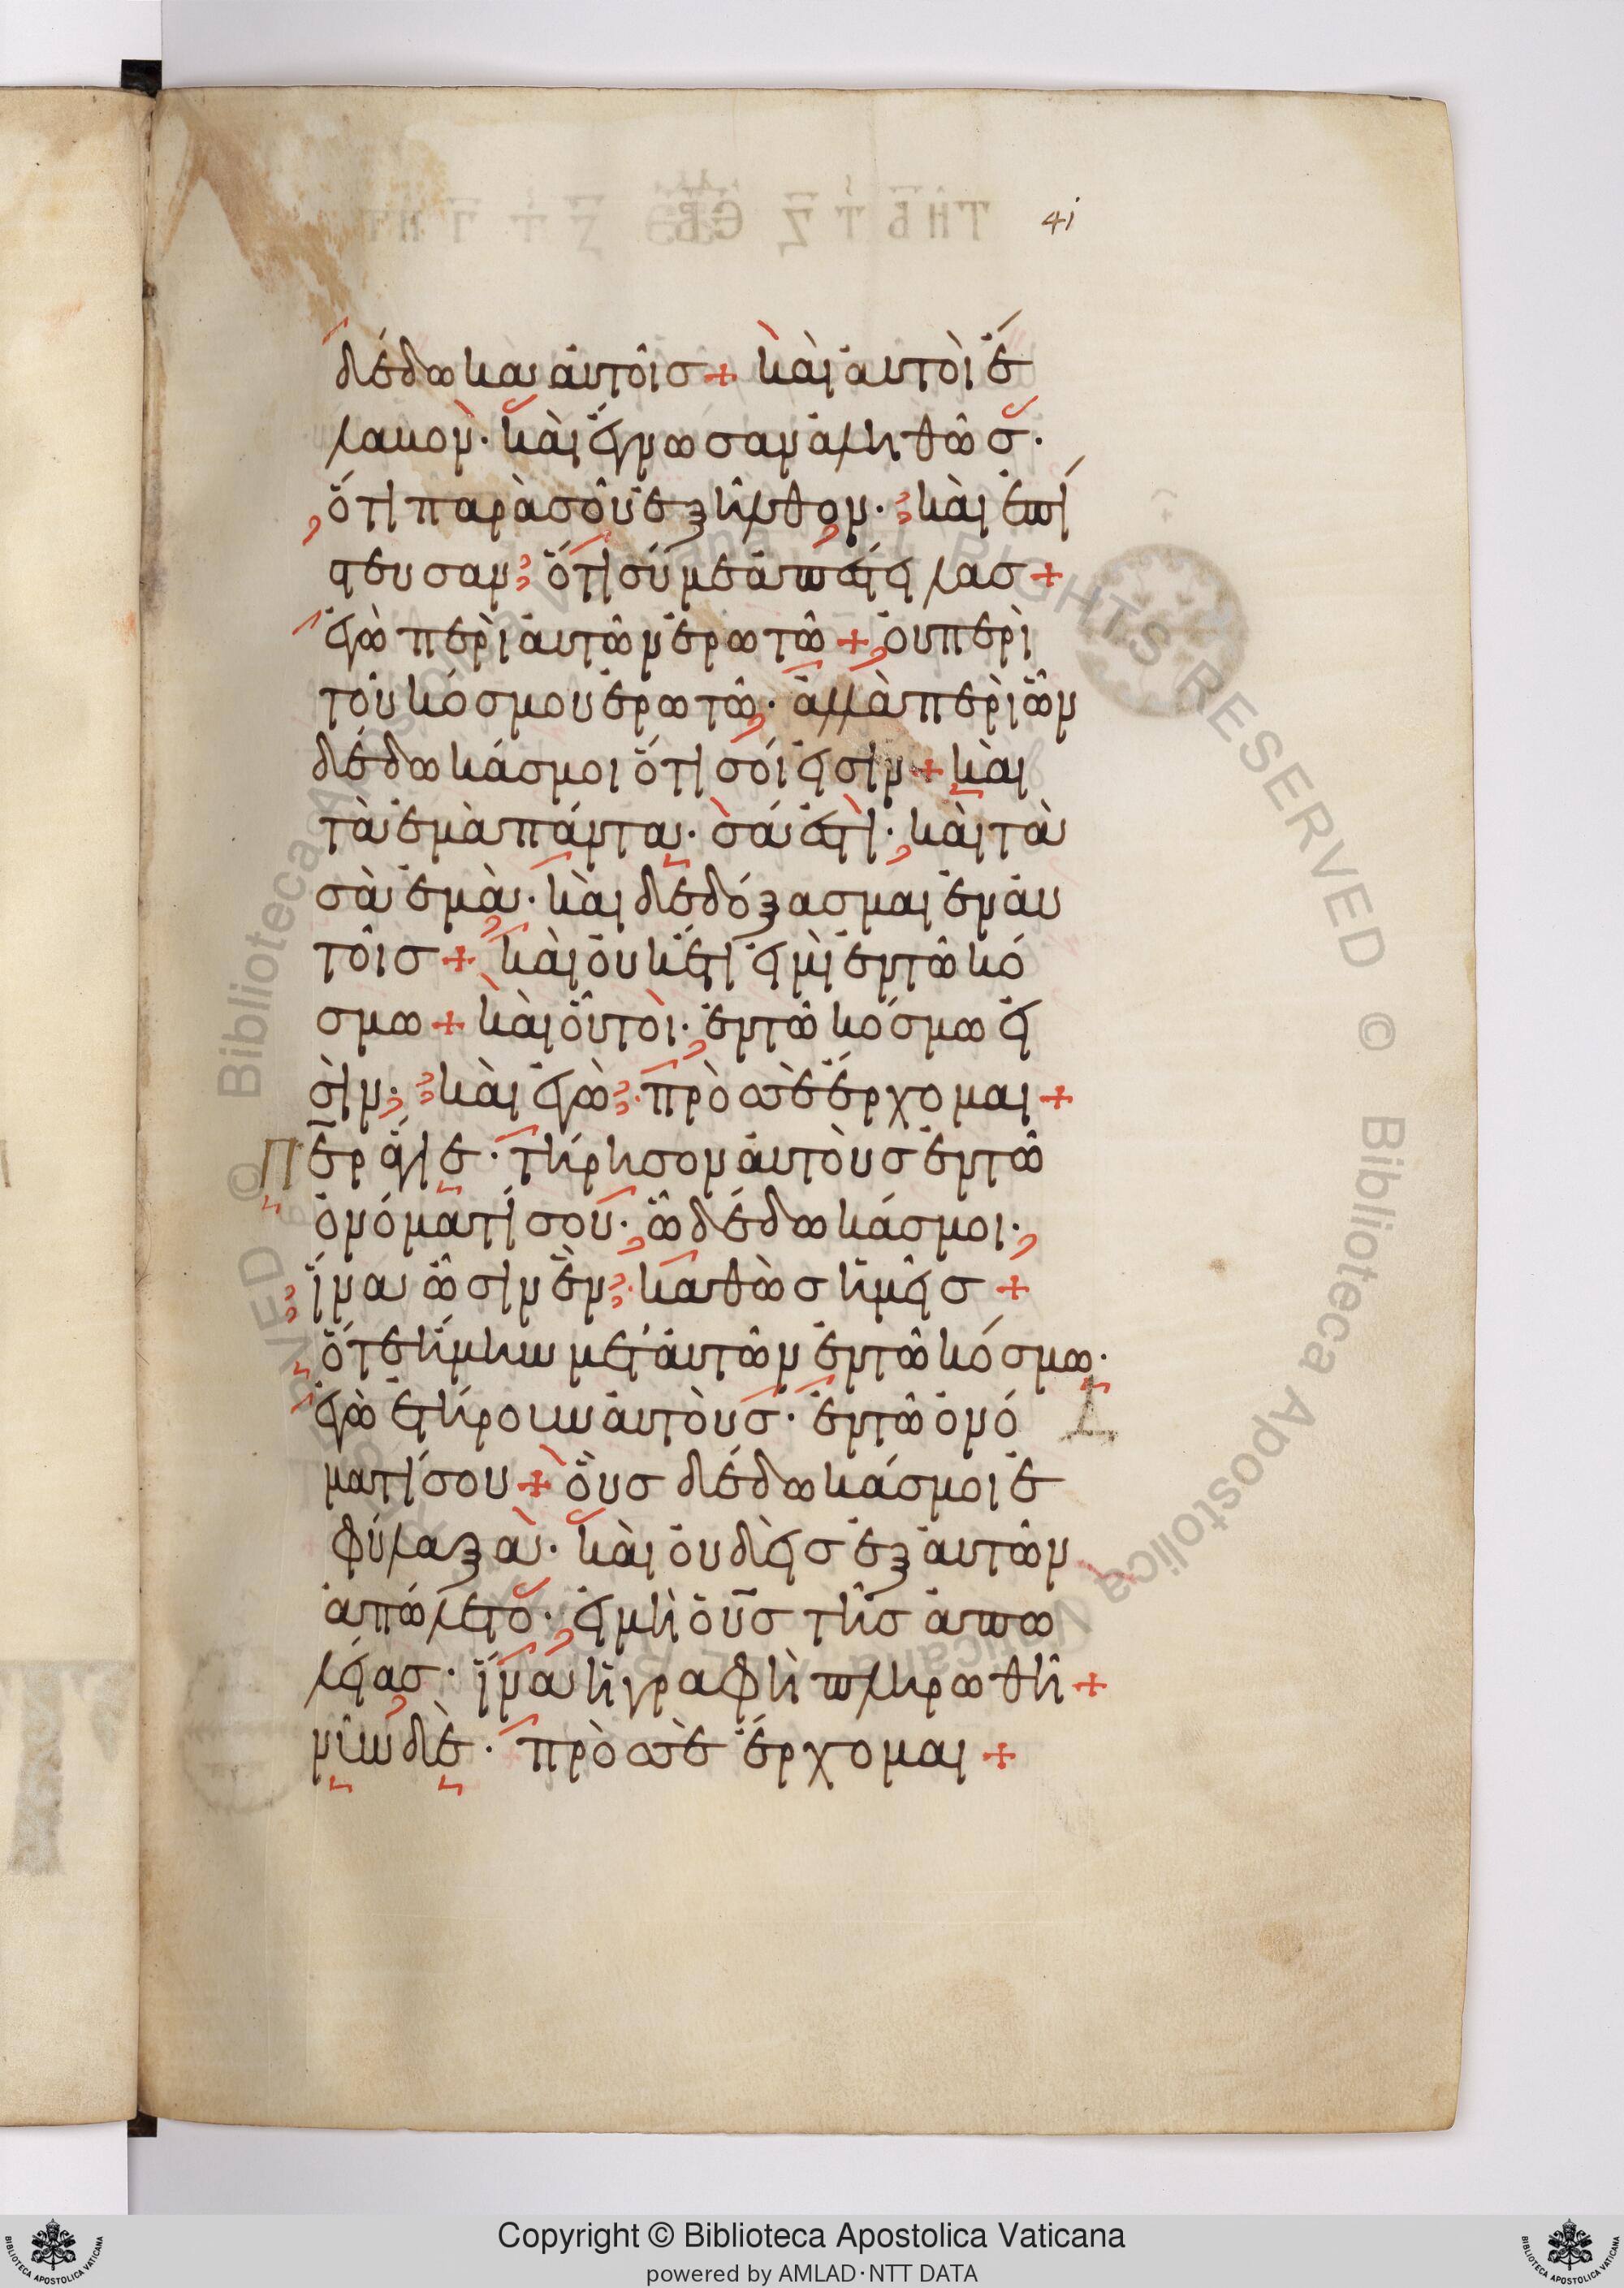 41
δέδωκα αὐτοῖσ + καὶ αὐτοὶ ἔ
λαβον· καὶ ἔγνωσαν ἀληθῶσ·
ὅτι παρὰ σοῦ ἐξῆλθον· καὶ ἐπί
στευσαν ὅτι σύ με ἀπέστειλασ +
ἐγὼ περὶ αὐτῶν ἐρωτῶ + οὐ περὶ
τοῦ κόσμου ἐρωτῶ· ἀλλὰ περὶ ὧν
δέδωκάσ μοι ὅτι σοί εἰσιν + καὶ
τὰ ἐμὰ πάντα· σά ἐστι· καὶ τὰ
σὰ ἐμὰ· καὶ δεδόξασμαι ἐν αὐ
τοῖσ + καὶ οὐκέτι εἰμὶ ἐν τῶ κό
σμω + καὶ οὗτοὶ· ἐν τῶ κόσμω εἰ
σὶν· καὶ ἐγὼ· πρὸσ σὲ ἔρχομαι +
Περ ἅγιε· τήρησον αὐτοὺσ ἐν τῶ
ὀνόματί σου· ὧ δέδωκάσ μοι·
ἵνα ὦσιν ἓν· καθὼσ ἡμεῖσ +
ὅτε ἤμην μετ' αὐτῶν ἐν τῶ κόσμω·
ἐγὼ ἐτήρουν αὐτοὺσ· ἐν τῶ ὀνό
ματί σου + οὓσ δέδωκάσ μοι ἐ
φύλαξα· καὶ οὐδεὶσ ἐξ αὐτῶν
ἀπώλετο· εἰ μὴ ὁ υσ τῆσ ἀπω
λείασ· ἵνα ἡ γραφὴ πληρωθῆ +
νῦν δὲ· πρὸσ σὲ ἔρχομαι +
Copyright © Biblioteca Apostolica Vaticana
powered by AMLAD·NTT DATA